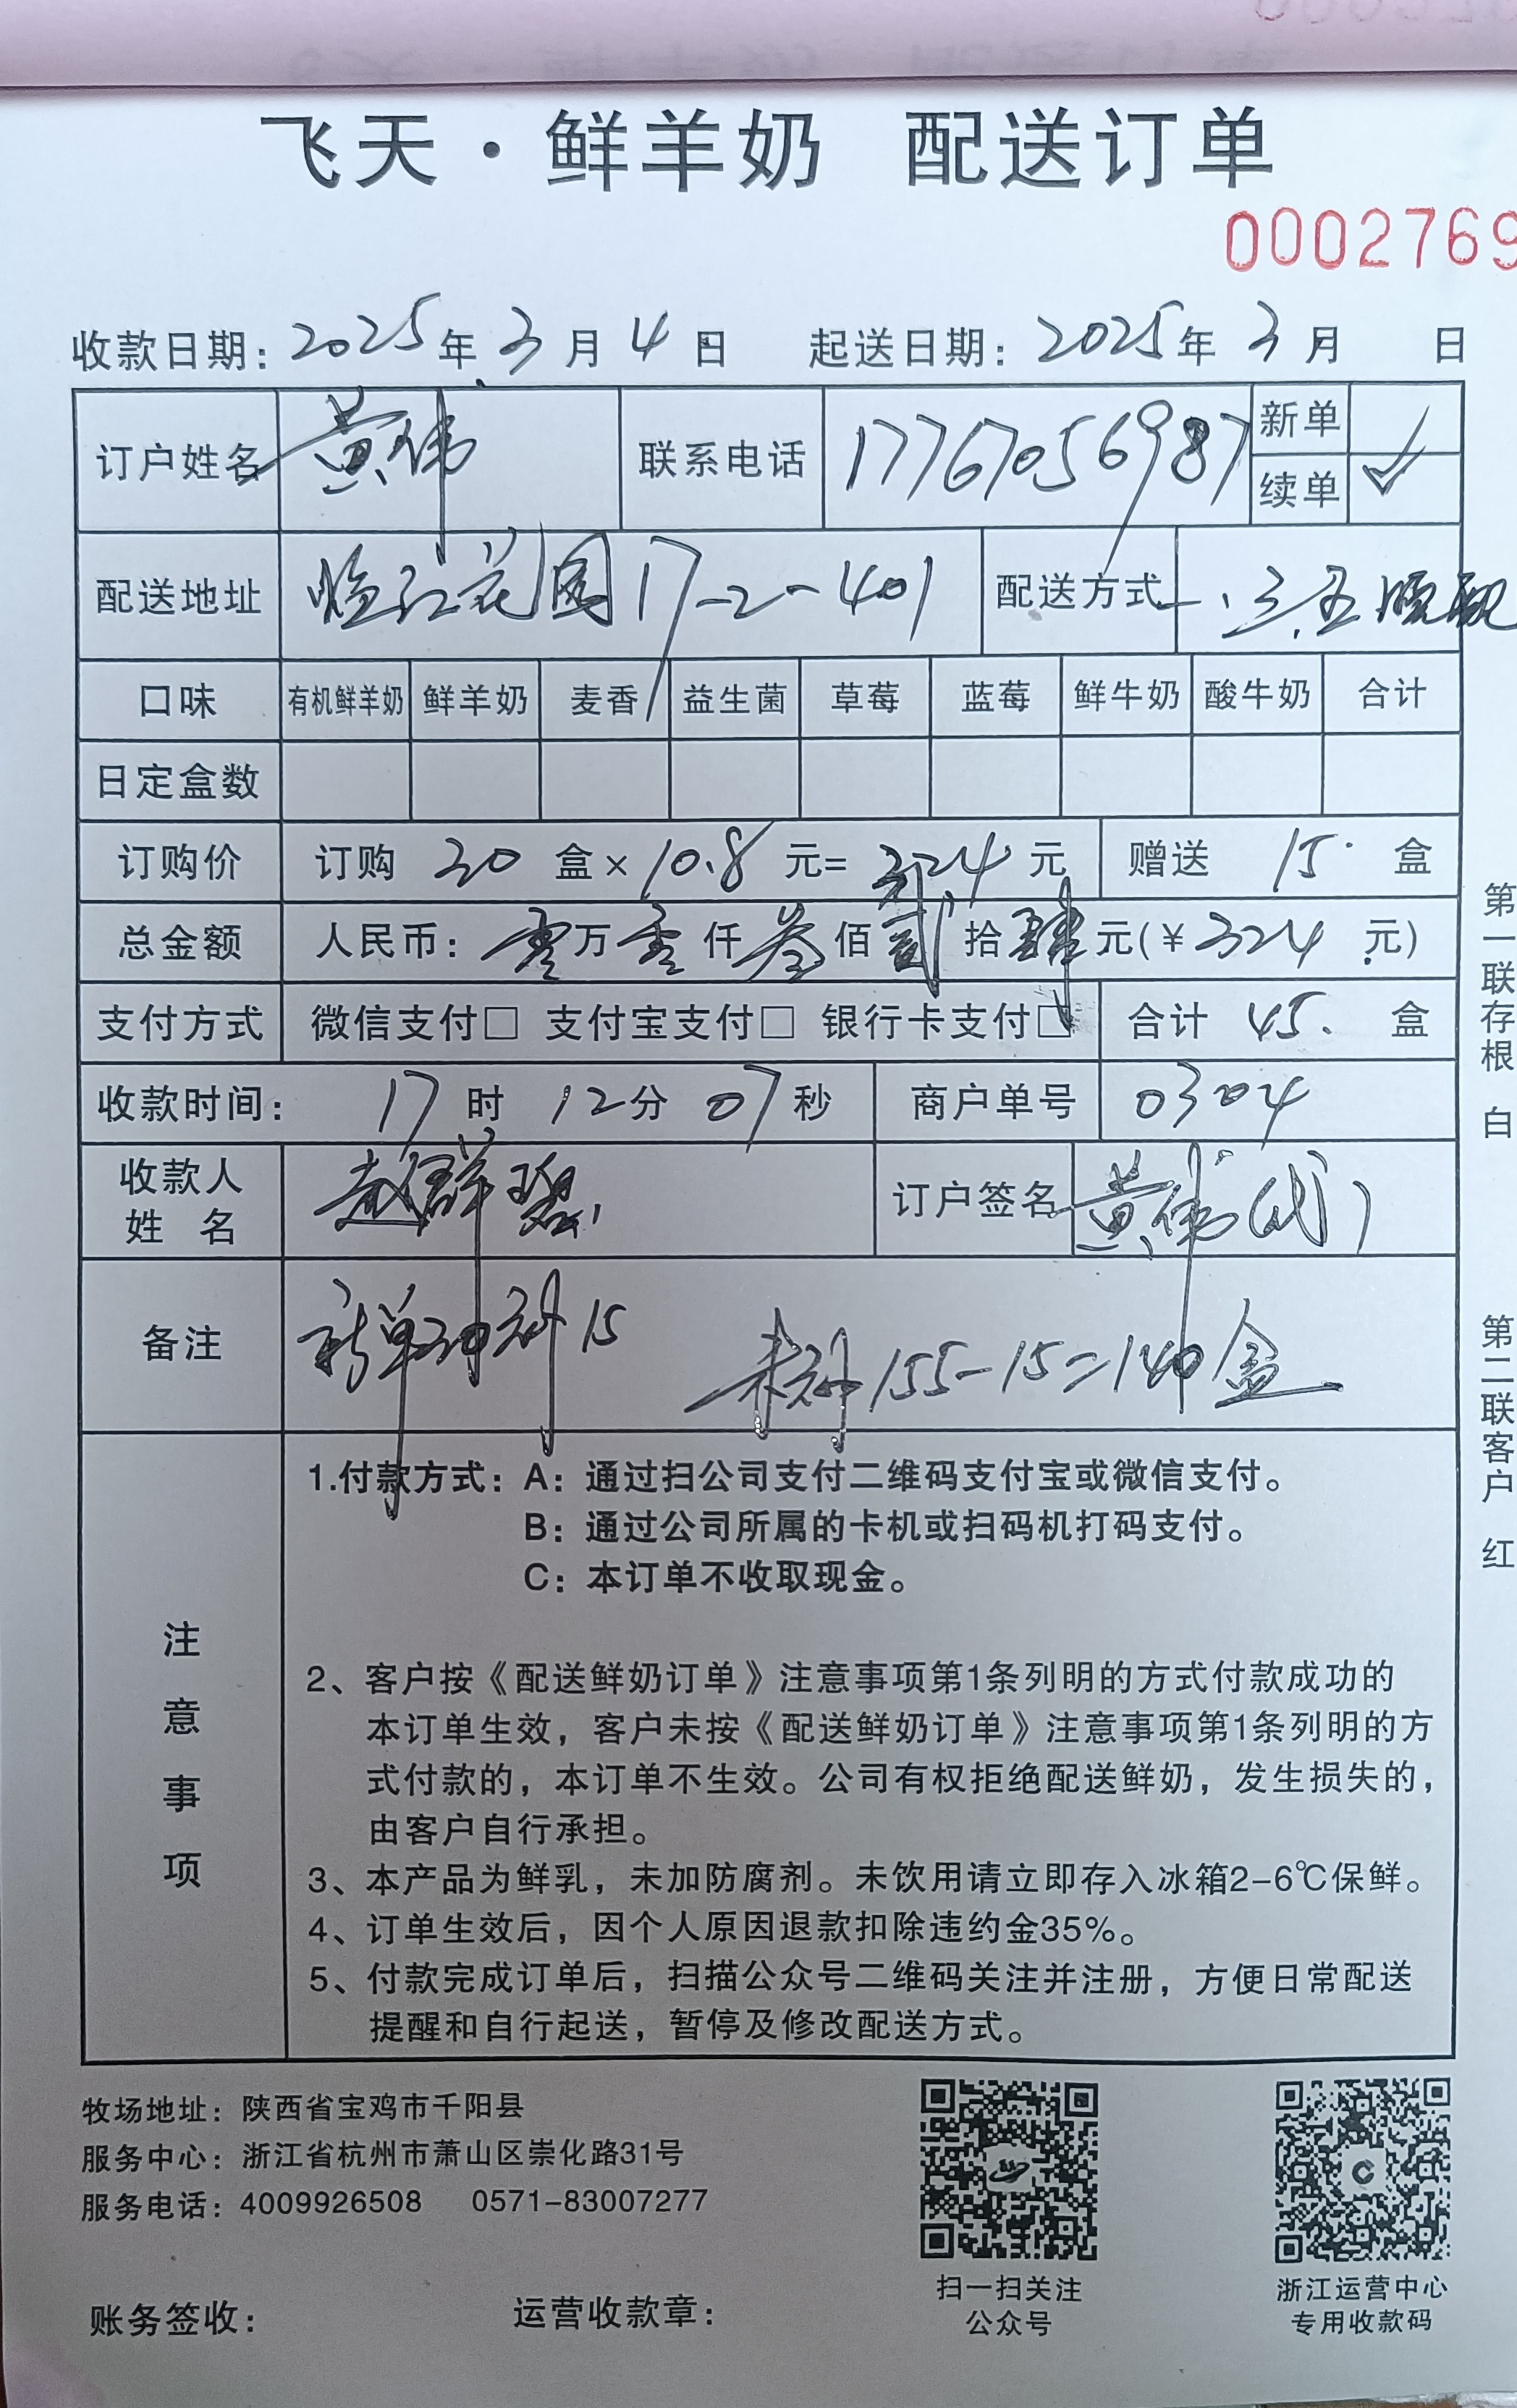 飞天·鲜羊奶 配送订单
0002769
收款日期：2025年3月4日 起送日期：2025年3月 日
订户姓名 黄伟 联系电话 17767056987 新单
续单 ✓
配送地址 临江花园17-2-401 配送方式 一.三.五
口味 有机鲜羊奶 鲜羊奶 麦香 益生菌 草莓 蓝莓 鲜牛奶 酸牛奶 合计
日定盒数
订购价 订购 30 盒×10.8元=324元 赠送 15 盒
总金额 人民币：零万零仟叁佰贰拾肆元(￥324元)
支付方式 微信支付□ 支付宝支付□ 银行卡支付□ 合计 45. 盒
收款时间：17时12分07秒 商户单号 0304
收款人
姓 名 赵群碧 订户签名 黄伟(代)
备注 15 未补155-15=140盒
注意事项
1.付款方式：A：通过扫公司支付二维码支付宝或微信支付。
B：通过公司所属的卡机或扫码机打码支付。
C：本订单不收取现金。
2、客户按《配送鲜奶订单》注意事项第1条列明的方式付款成功的
本订单生效，客户未按《配送鲜奶订单》注意事项第1条列明的方
式付款的，本订单不生效。公司有权拒绝配送鲜奶，发生损失的，
由客户自行承担。
3、本产品为鲜乳，未加防腐剂。未饮用请立即存入冰箱2-6℃保鲜。
4、订单生效后，因个人原因退款扣除违约金35%。
5、付款完成订单后，扫描公众号二维码关注并注册，方便日常配送
提醒和自行起送，暂停及修改配送方式。
第一联存根 白
第二联客户 红
牧场地址：陕西省宝鸡市千阳县
服务中心：浙江省杭州市萧山区崇化路31号
服务电话：4009926508 0571-83007277
扫一扫关注
公众号
浙江运营中心
专用收款码
账务签收：
运营收款章：